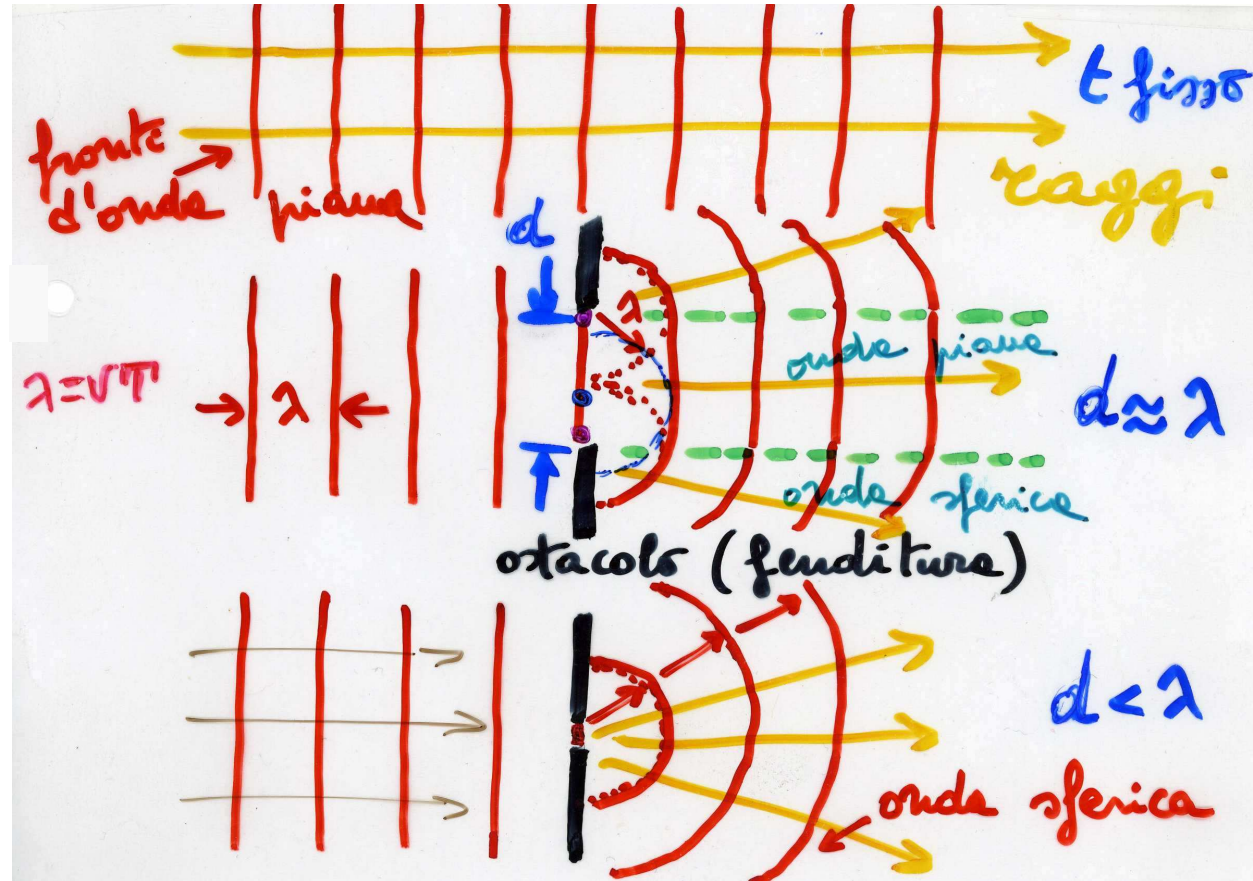 t fisso
fronte
d'onda piana
raggi
d
λ
onda piana
λ=vT
λ
d ≈ λ
onda sferica
ostacolo (fenditura)
d < λ
onda sferica